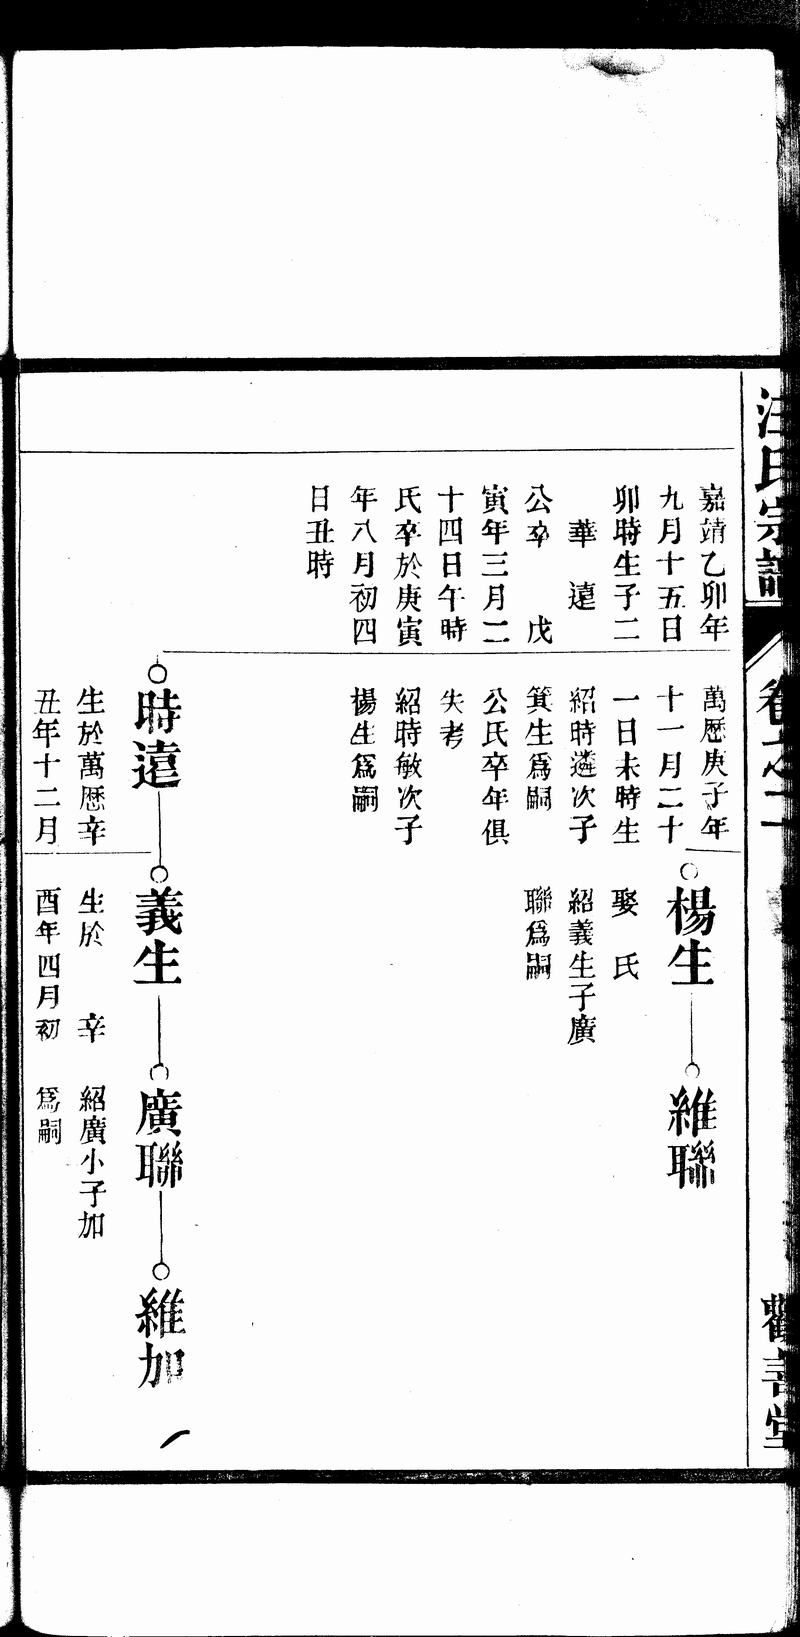 汪氏宗譜
卷之二
勸善堂
嘉靖乙卯年
九月十五日
卯時生子二
華遠
公卒　戊
寅年三月二
十四日午時
氏卒於庚寅
年八月初四
日丑時
萬歷庚子年
十一月二十
一日未時生
紹時遴次子
箕生爲嗣
公氏卒年俱
失考
紹時敏次子
楊生爲嗣
楊生
娶　氏
紹義生子廣
聯爲嗣
維聯
時遠
生於萬歷辛
丑年十二月
義生
生於　辛
酉年四月初
廣聯
紹廣小子加
爲嗣
維加